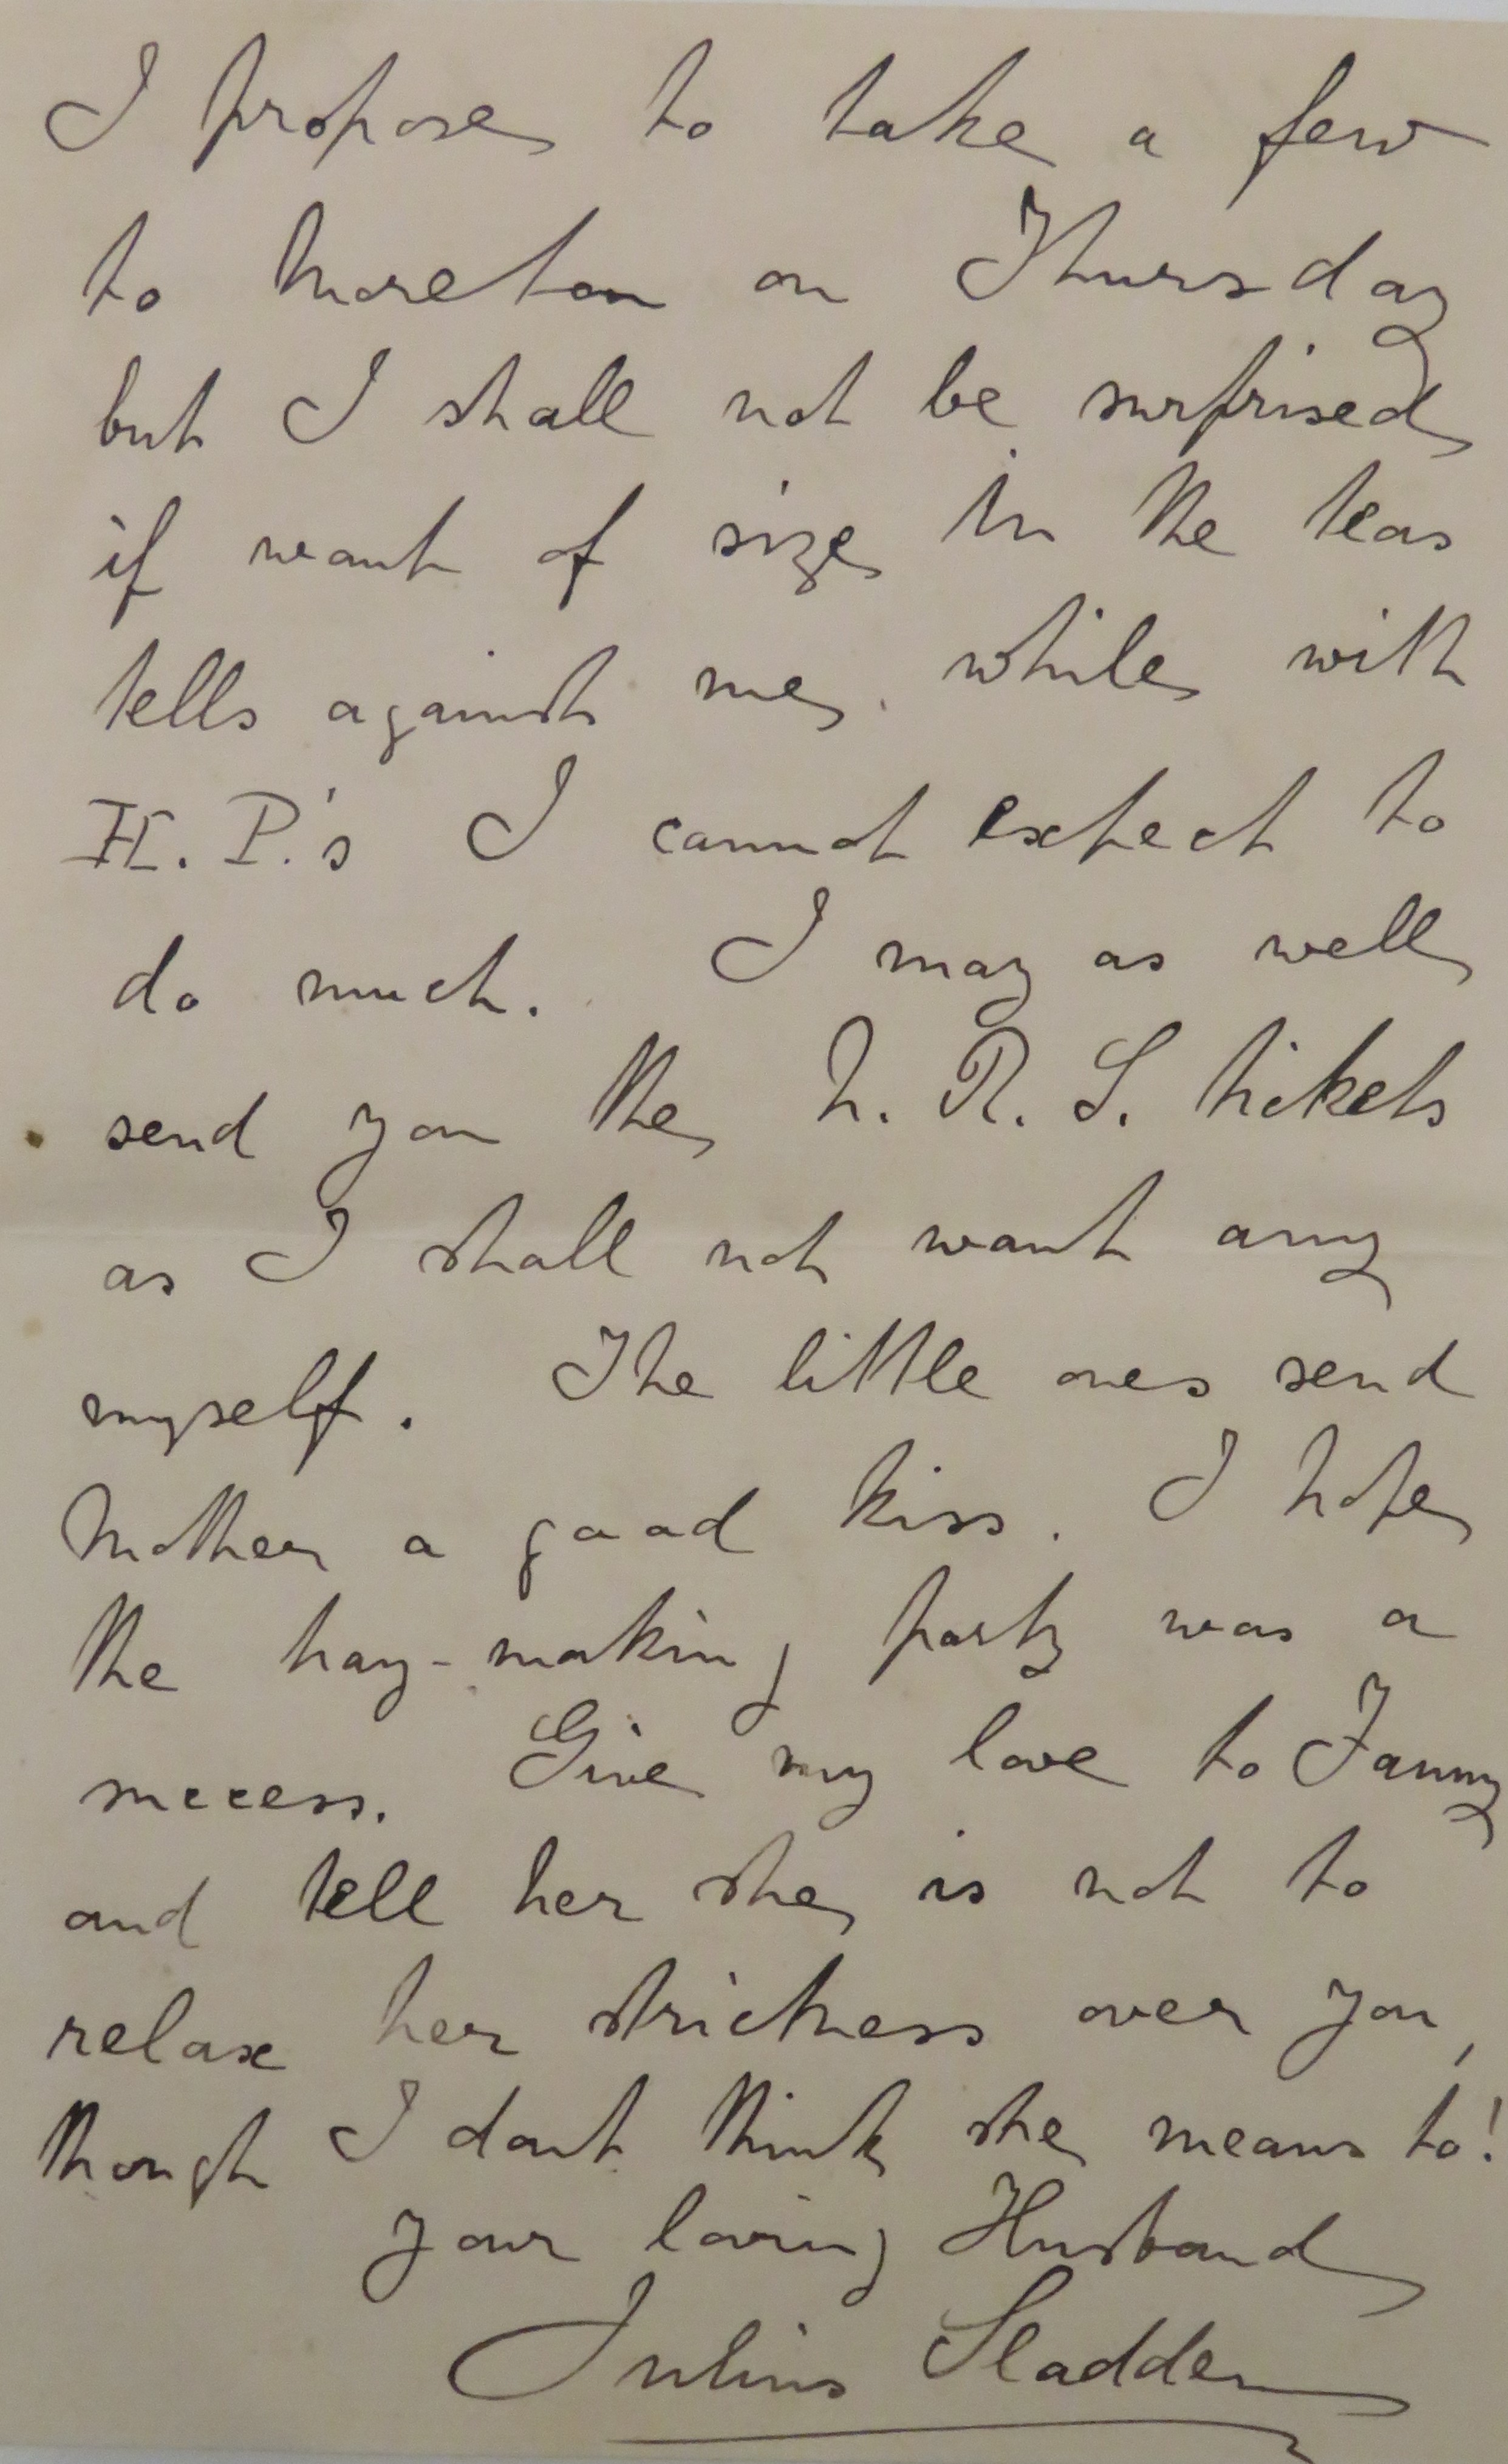 I propose to take a few
to Moreton on Thursday
but I shall not be surprised
if want of size in the teas
tells against me while with
H. P.'s I cannot expect to
do much. I may as well
send you the N. R. S. tickets
as I shall not want any
myself. The little ones send
Mother a good kiss. I hope
the hay-making party was a
success. Give my love to Fanny
and tell her she is not to
relax her strictness over you,
though I dont think she means to!
Your loving Husband
Julius Sladden